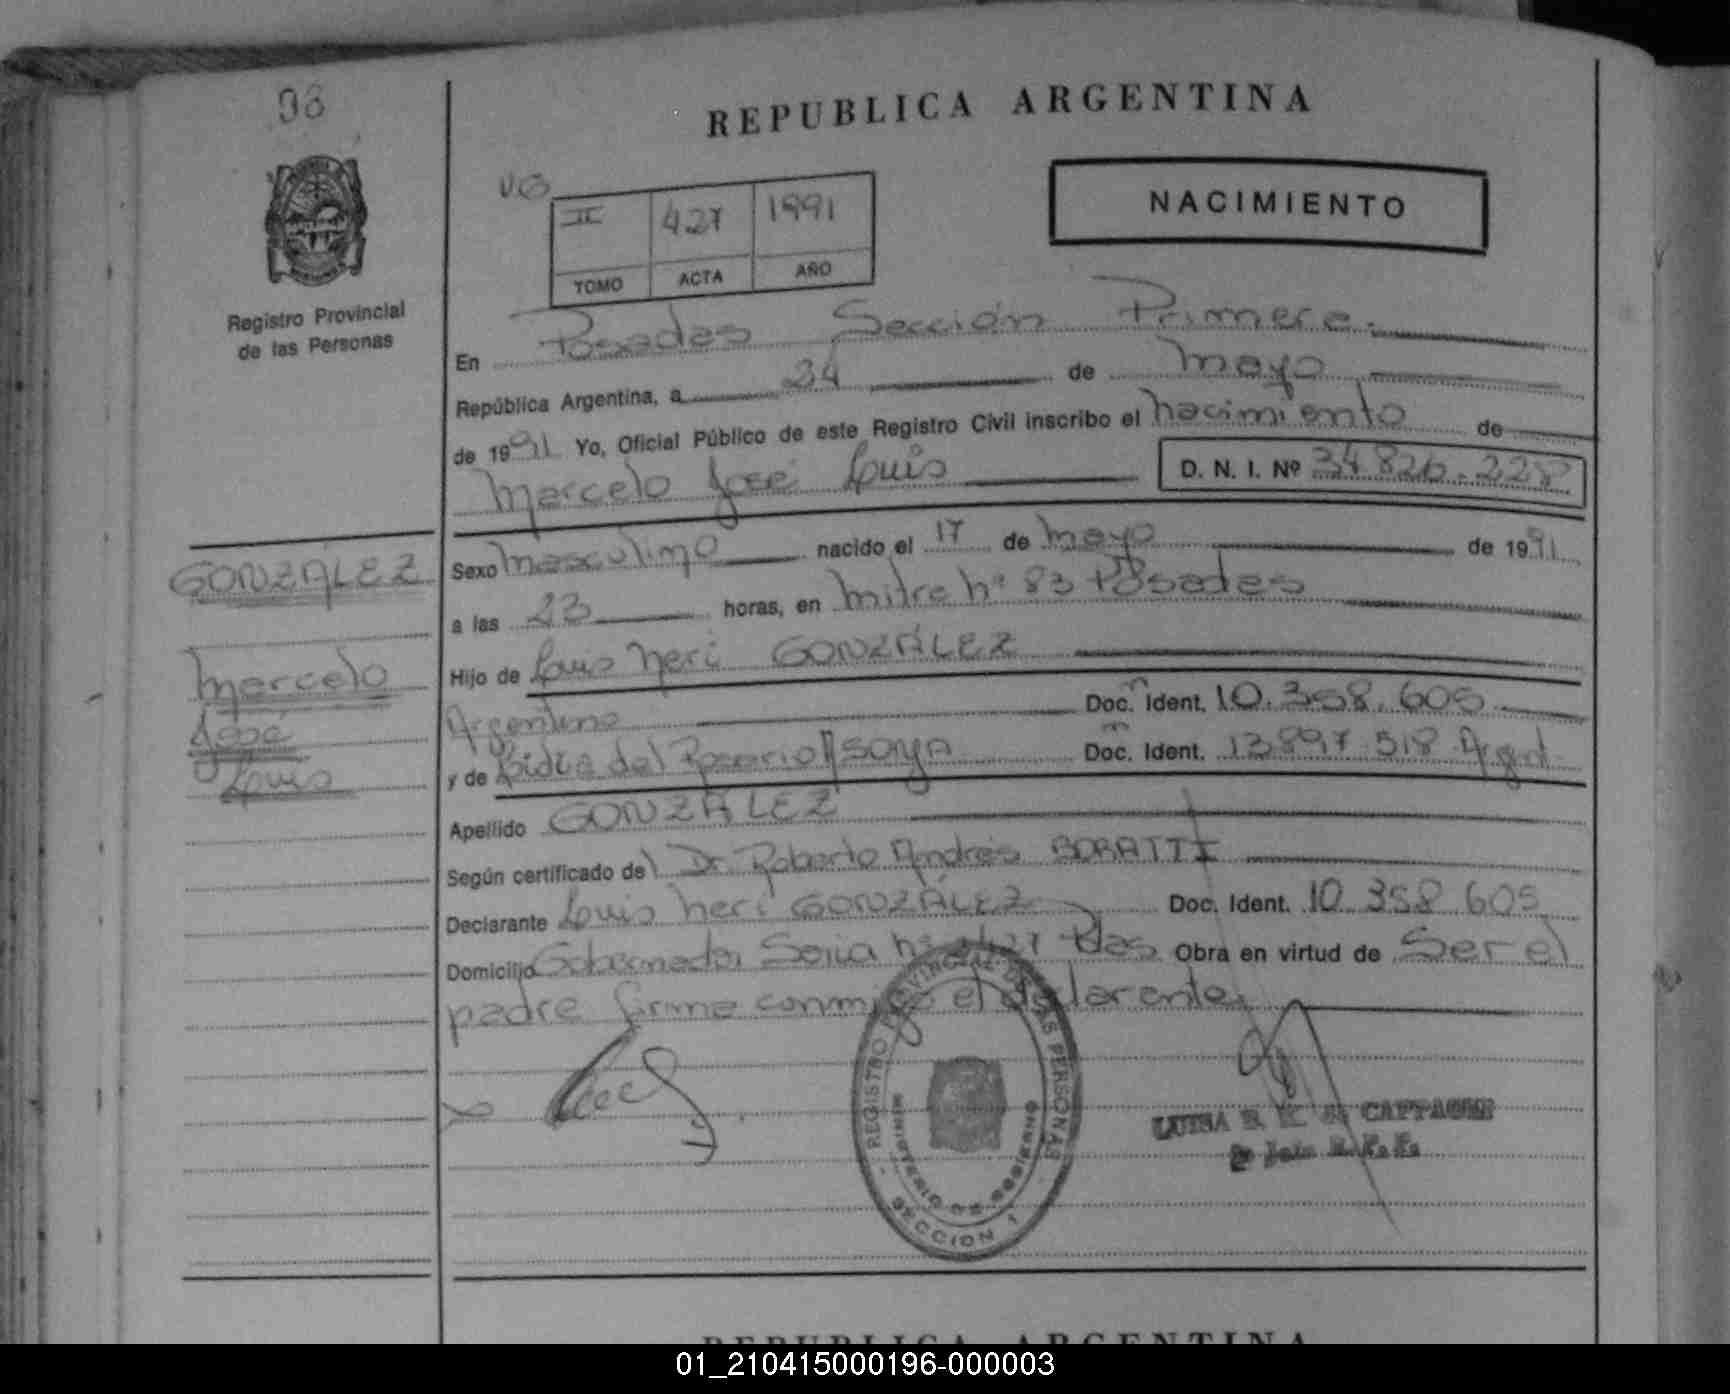 98
REPUBLICA ARGENTINA
NACIMIENTO
II 427 1991
TOMO ACTA AÑO
Registro Provincial
de las Personas
En Posadas Sección Primera.
República Argentina, a 24 de Mayo
de 1991 Yo, Oficial Público de este Registro Civil inscribo el nacimiento de
Marcelo José Luis D. N. I. Nº 34.826.228
GONZÁLEZ
Marcelo
José
Luis
Sexo Masculino nacido el 17 de Mayo de 1991
a las 23 horas, en Mitre nº 83 Posadas
Hijo de Luis Neri GONZÁLEZ
Argentino Doc. Ident. 10.358.605
y de Lidia del Rosario Doc. Ident. 13.897.518 Argent.
Apellido GONZÁLEZ
Según certificado del Dr. Roberto Andrés
Declarante Luis Neri GONZÁLEZ Doc. Ident. 10.358.605
Domicilio Gobernador nº Pdas Obra en virtud de Ser el
padre firma conmigo el declarante.
REGISTRO PROVINCIAL DE LAS PERSONAS
MINISTERIO DE GOBIERNO
SECCION 1
LUISA
REPUBLICA ARGENTINA
01_210415000196-000003